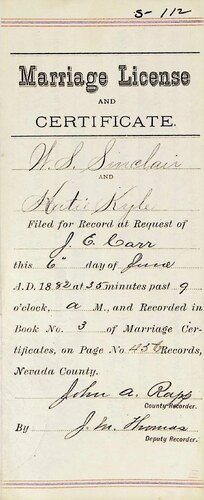 S-112
Marriage License
AND
CERTIFICATE.
W. S. Sinclair
AND
Katie Kyle
Filed for Record at Request of
J. E. Carr
this 6" day of June
A.D. 1882 at 35 minutes past 9
o'clock, a M., and Recorded in
Book No. 3 of Marriage Cer-
tificates, on Page No. 456 Records,
Nevada County.
John A. Rapp
County Recorder.
By J. M. Thomas
Deputy Recorder.